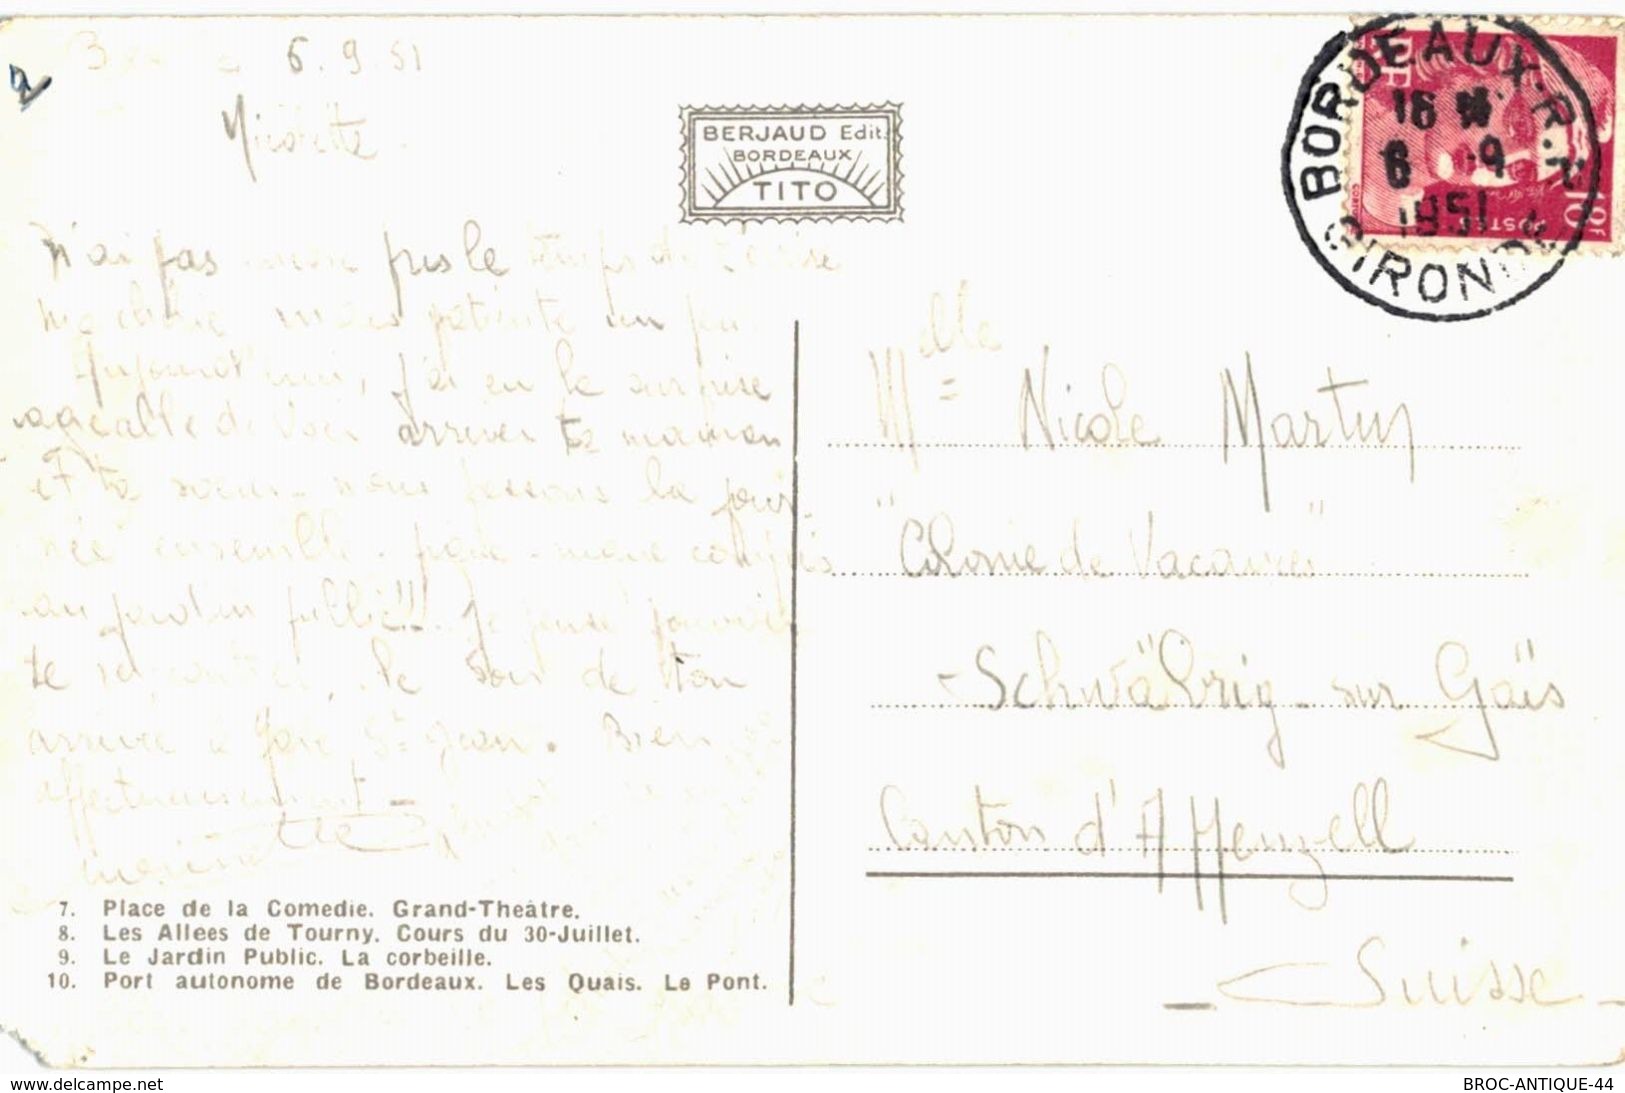 6.9.51
BERJAUD Edit.
BORDEAUX
TITO
BORDEAUX.R.P.
16 H
6 9
1951
GIRONDE
RF
POSTES
18F
N'ai pas pris le temps de
mais patiente un peu
Aujourd'hui, j'ai eu la surprise
agréable de voir arriver ta maman
et ta soeur. nous passons la jour-
née ensemble. pique-nique compris
au jardin public!!! Je pense pouvoir
te rencontrer, le soir de ton
arrivée à Gare St Jean. Bien
affectueusement
Mlle Nicole Martin
"Colonie de Vacances"
Schwäbrig-sur Gaïs
Canton d'Appenzell
Suisse
7. Place de la Comedie. Grand-Theâtre.
8. Les Allees de Tourny. Cours du 30-Juillet.
9. Le Jardin Public. La corbeille.
10. Port autonome de Bordeaux. Les Quais. Le Pont.
www.delcampe.net
BROC-ANTIQUE-44